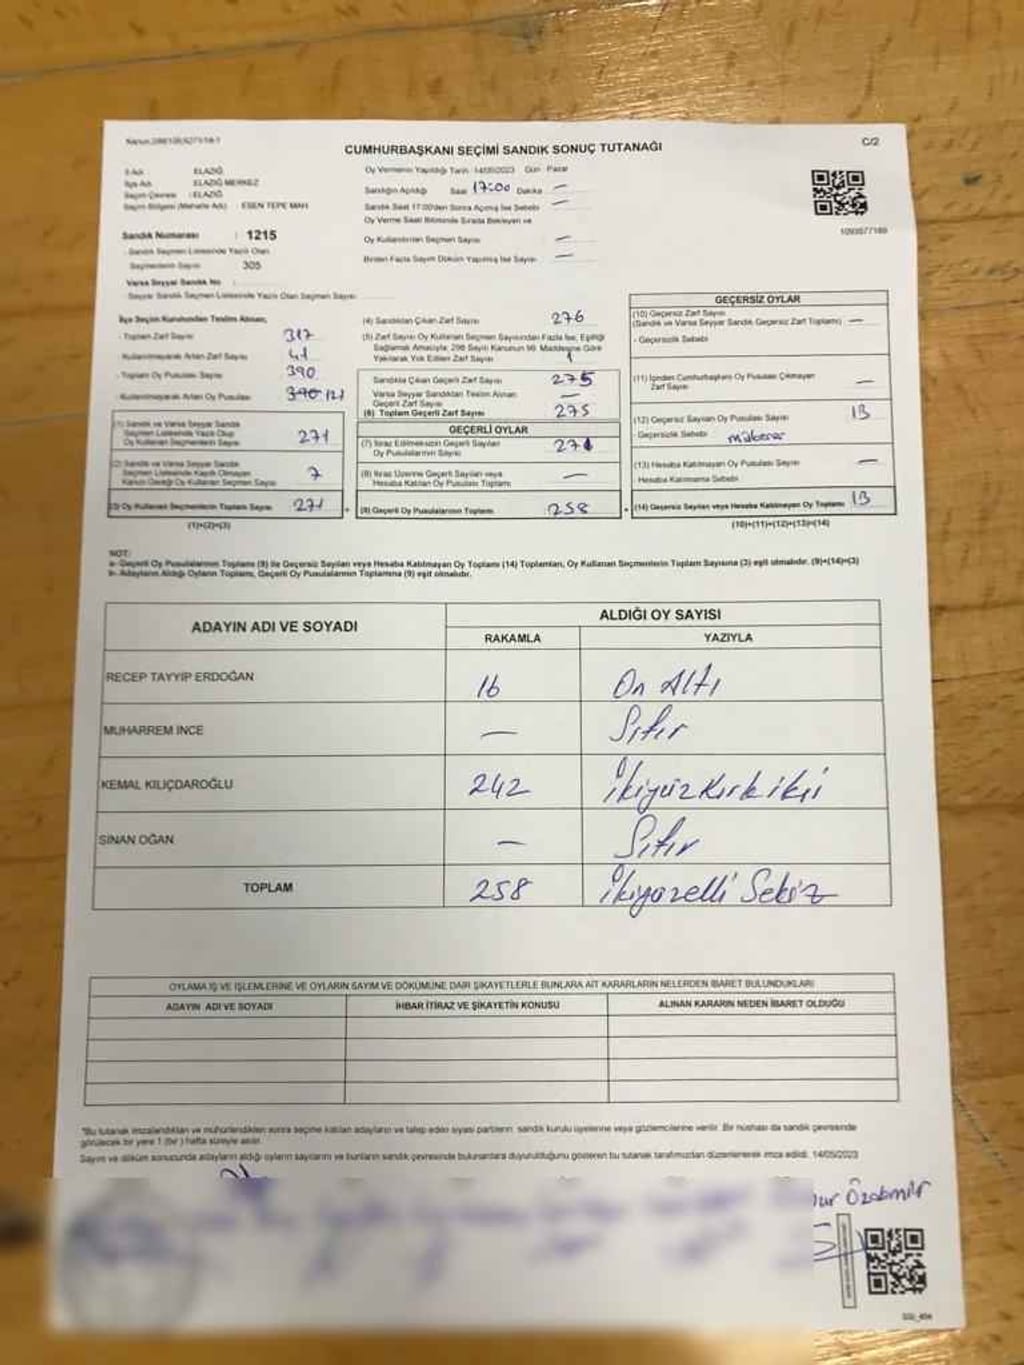 CUMHURBAŞKANI SEÇİMİ SANDIK SONUÇ TUTANAĞI
C/2
İl Adı : ELAZIĞ
İlçe Adı : ELAZIĞ MERKEZ
Seçim Çevresi : ELAZIĞ
Seçim Bölgesi (Mahalle Adı) : ESENTEPE MAH.
Sandık Numarası : 1215
Sandık Seçmen Listesinde Yazılı Olan
Seçmenlerin Sayısı : 305
Varsa Seyyar Sandık No :
Seyyar Sandık Seçmen Listesinde Yazılı Olan Seçmen Sayısı
Oy Vermenin Yapıldığı Tarih : 14/05/2023 Gün : Pazar
Sandığın Açıldığı Saat 17:00 Dakika —
Sandık Saat 17:00'den Sonra Açılmış İse Sebebi —
Oy Verme Saati Bitiminde Sırada Bekleyen ve
Oy Kullandırılan Seçmen Sayısı —
Birden Fazla Sayım Döküm Yapılmış İse Sayısı —
1093077189
İlçe Seçim Kurulundan Teslim Alınan;
- Toplam Zarf Sayısı 317
- Kullanılmayarak Artan Zarf Sayısı 41
- Toplam Oy Pusulası Sayısı 390
- Kullanılmayarak Artan Oy Pusulası 390 121
(1) Sandık ve Varsa Seyyar Sandık
Seçmen Listesinde Yazılı Olup
Oy Kullanan Seçmenlerin Sayısı 271
(2) Sandık ve Varsa Seyyar Sandık
Seçmen Listesinde Kayıtlı Olmayan
Kanun Gereği Oy Kullanan Seçmen Sayısı 7
(3) Oy Kullanan Seçmenlerin Toplam Sayısı 271
(1)+(2)=(3)
(4) Sandıktan Çıkan Zarf Sayısı 276
(5) Zarf Sayısı Oy Kullanan Seçmen Sayısından Fazla İse, Eşitliği
Sağlamak Amacıyla; 298 Sayılı Kanunun 98. Maddesine Göre
Yakılarak Yok Edilen Zarf Sayısı 1
Sandıkta Çıkan Geçerli Zarf Sayısı 275
Varsa Seyyar Sandıktan Teslim Alınan
Geçerli Zarf Sayısı —
(6) Toplam Geçerli Zarf Sayısı 275
GEÇERLİ OYLAR
(7) İtiraz Edilmeksizin Geçerli Sayılan
Oy Pusulalarının Sayısı 271
(8) İtiraz Üzerine Geçerli Sayılan veya
Hesaba Katılan Oy Pusulası Toplamı —
(9) Geçerli Oy Pusulalarının Toplamı 258
GEÇERSİZ OYLAR
(10) Geçersiz Zarf Sayısı
(Sandık ve Varsa Seyyar Sandık Geçersiz Zarf Toplamı) —
- Geçersizlik Sebebi
(11) İçinden Cumhurbaşkanı Oy Pusulası Çıkmayan
Zarf Sayısı —
(12) Geçersiz Sayılan Oy Pusulası Sayısı 13
- Geçersizlik Sebebi
(13) Hesaba Katılmayan Oy Pusulası Sayısı —
Hesaba Katılmama Sebebi
(14) Geçersiz Sayılan veya Hesaba Katılmayan Oy Toplamı 13
(10)+(11)+(12)+(13)=(14)
NOT:
a- Geçerli Oy Pusulalarının Toplamı (9) ile Geçersiz Sayılan veya Hesaba Katılmayan Oy Toplamı (14) Toplamları, Oy Kullanan Seçmenlerin Toplam Sayısına (3) eşit olmalıdır. (9)+(14)=(3)
b- Adayların Aldığı Oyların Toplamı, Geçerli Oy Pusulalarının Toplamına (9) eşit olmalıdır.
ADAYIN ADI VE SOYADI ALDIĞI OY SAYISI
RAKAMLA YAZIYLA
RECEP TAYYİP ERDOĞAN 16 On Altı
MUHARREM İNCE — Sıfır
KEMAL KILIÇDAROĞLU 242 İkiyüzkırkiki
SİNAN OĞAN — Sıfır
TOPLAM 258 İkiyüzelli Sekiz
OYLAMA İŞ VE İŞLEMLERİNE VE OYLARIN SAYIM VE DÖKÜMÜNE DAİR ŞİKAYETLERLE BUNLARA AİT KARARLARIN NELERDEN İBARET BULUNDUKLARI
ADAYIN ADI VE SOYADI İHBAR İTİRAZ VE ŞİKAYETİN KONUSU ALINAN KARARIN NEDEN İBARET OLDUĞU
"Bu tutanak imzalandıktan ve mühürlendikten sonra seçime katılan adayların ve talep eden siyasi partilerin sandık kurulu üyelerine veya gözlemcilerine verilir. Bir nüshası da sandık çevresinde
görülecek bir yere 1 (bir) hafta süreyle asılır.
Sayım ve döküm sonucunda adayların aldığı oyların sayılarını ve bunların sandık çevresinde bulunanlara duyurulduğunu gösteren bu tutanak tarafımızdan düzenlenerek imza edildi. 14/05/2023